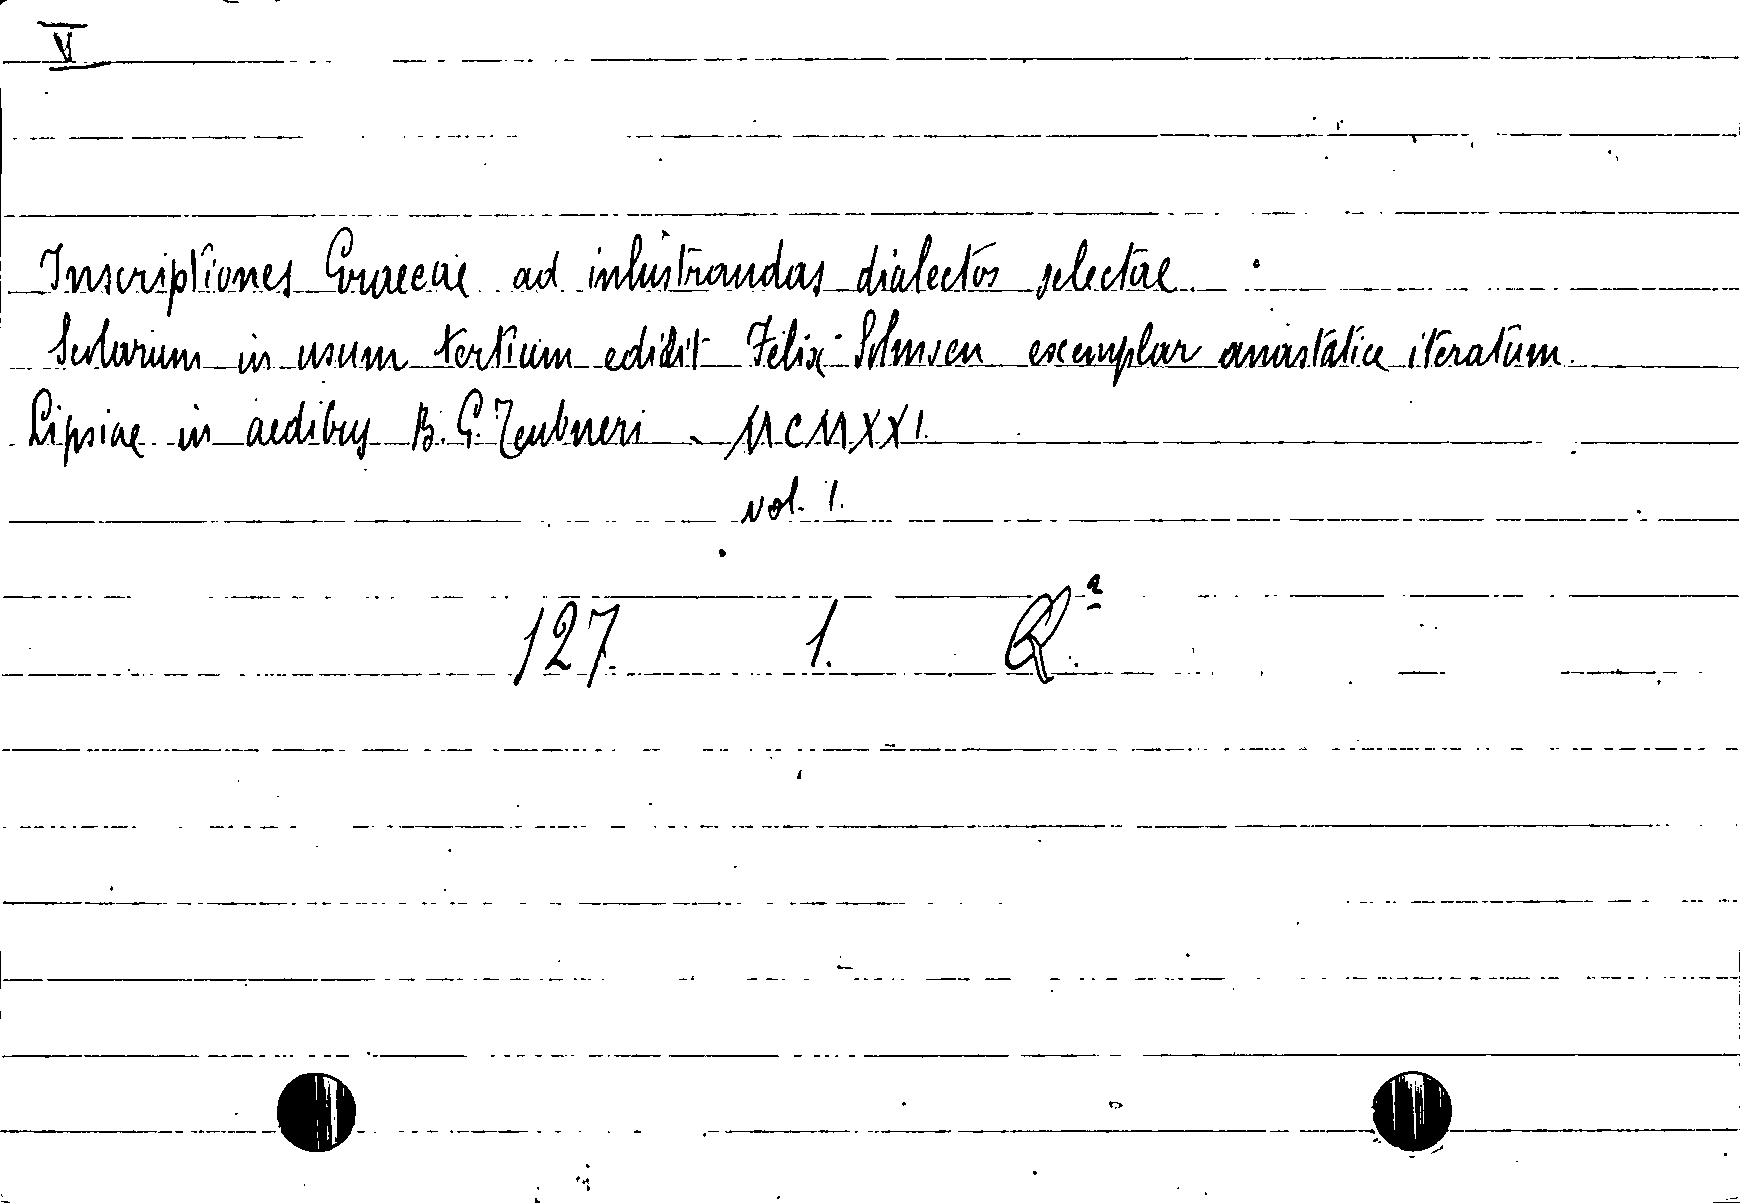 V
Inscriptiones Graecae ad inlustrandas dialectos selectae
Scolarum in usum tertium edidit Felix Solmsen exemplar anastatice iteratum.
Lipsiae in aedibus B. G. Teubneri MCMXXI.
vol. I.
127. 1. Q.ª